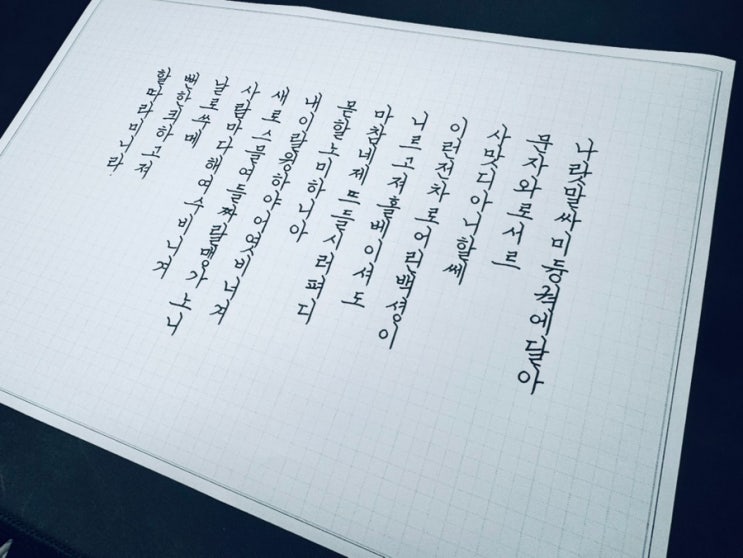 나랏말싸미듕귁에달아
문자와로서르
사맛디아니할쎄
이런전차로어린백셩이
니르고져홀베이셔도
마참네제뜨들시러펴디
몯할노미하니아
내이랄윙하야어엿비너겨
새로스믈여들짜랄맹가노니
사람마다해여수비니겨
날로쑤메
뻔한킈하고져
할따라미니라.